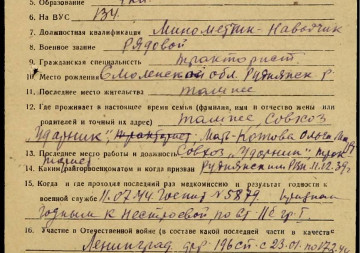 5. Образование 4 кл.
6. На ВУС 134
7. Должностная квалификация Минометчик-Наводчик
8. Военное звание Рядовой
9. Гражданская специальность тракторист
10. Место рождения Смоленской обл Руднянск р.
11. Последнее место жительства там же
12. Где проживает в настоящее время семья (фамилия, имя и отчество жены или
родителей и точный их адрес) там же, Совхоз
„Ударник", Мать-
13. Последнее место работы и должность Совхоз „Ударник" трак
торист
14. Каким райгорвоенкоматом и когда призван Руднянский РВК 11.12.39,
15. Когда и где проходил последний раз медкомиссию и результат годности к
военной службе 11.07.44 Госпит № 5879 признан
Годным к нестроевой по ст.
16. Участие в Отечественной войне (в составе какой последней части и в качестве
Ленинград. фр 196 сп - с 23.01. по